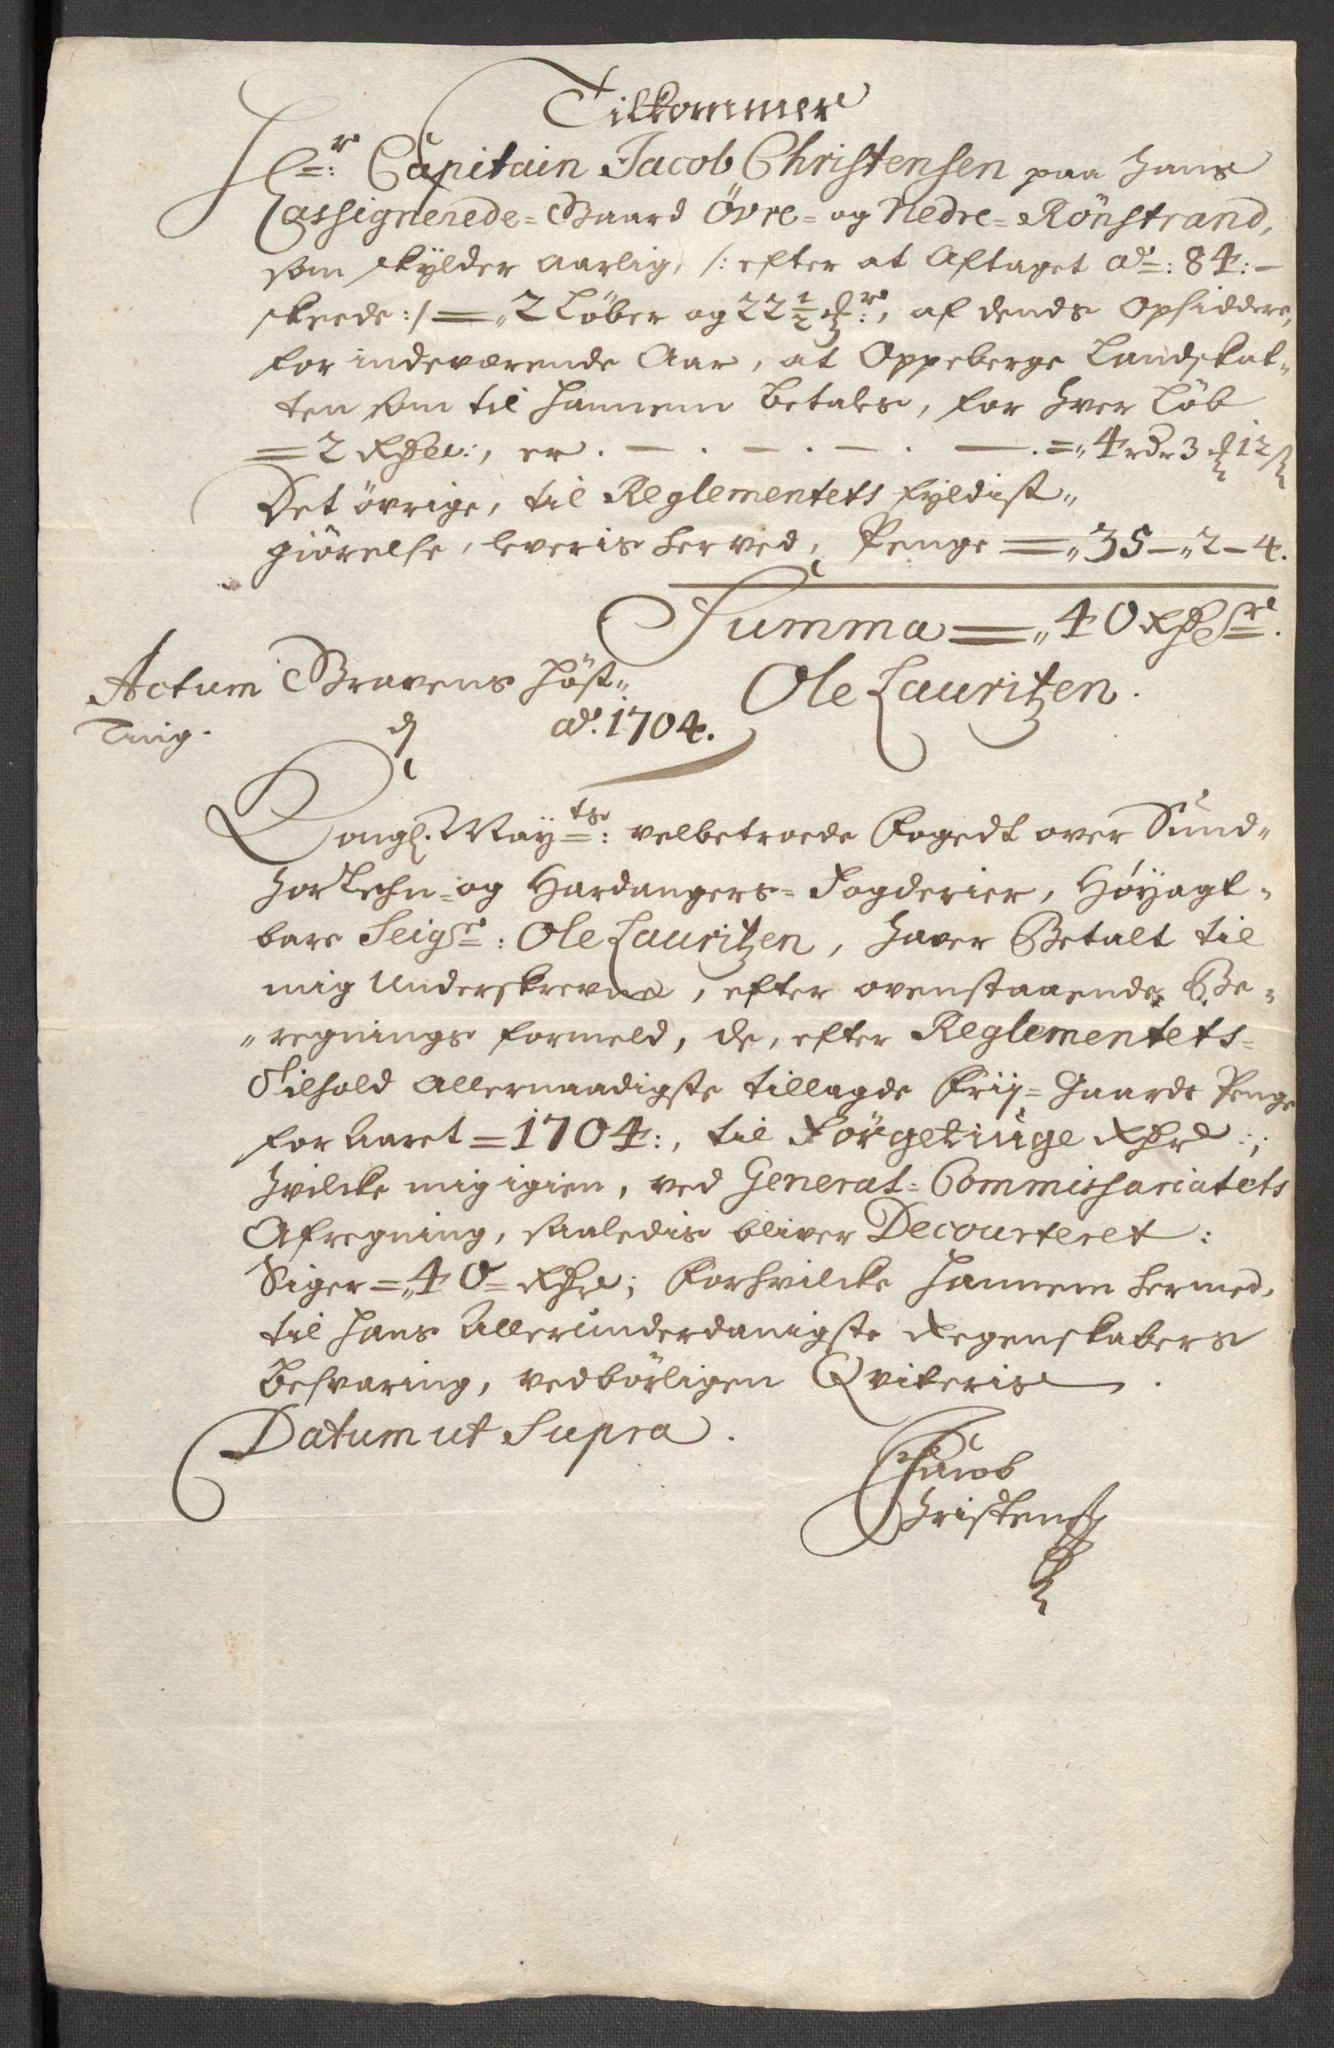 Tilkommer
Hr: Capitain Jacob Christensen paa hans
assignerede= Gaard Övre= og Nedre= Rönstrand,
som skylder aarlig, /: efter at Aftaget Ao: 84: –
skeede :/ =„ 2 Löber og 22 1/2 mkr:, af dends Opsiddere,
for indeværende Aar, at Oppeberge Landskat„
ten som til hannem betales, for hver Löb
= 2 Rdlr:, er . — . — . — . — . =„ 4 rdr 3 mk 12 s
Det övrige, til Reglementets fyldist„
giörelse, leveris herved, Penge =„ 35 –„ 2 – 4.
Summa =„ 40 Rdlr.
Actum Gravens Höst„
Ole Lauritzen.
Ting. d ao. 1704.
Kongl. Mayts: velbetroede Foget over Sund„
hor Lehn= og Hardangers= Fogderier, Höyagt„
bare Seigr: Ole Lauritzen, haver Betalt til
mig Underskrevne, efter ovenstaaende Be„
„regnings formeld, de, efter Reglementets=
Tilhold Allernaadigste tillagde Frij= Gaards Penge
for Aaret = 1704:, til Förgetiuge Rdlr:;
hvilcke mig igien, ved General= Commissariatets
Afregning, saaledis bliver Decourteret:
Siger =„ 40 = Rdlr; Forhvilcke hannem hermed,
til hans Allerunderdanigste Regenskabers
besvaring, vedbörligen Qviteris.
Datum ut Supra.
Jacob
Christens